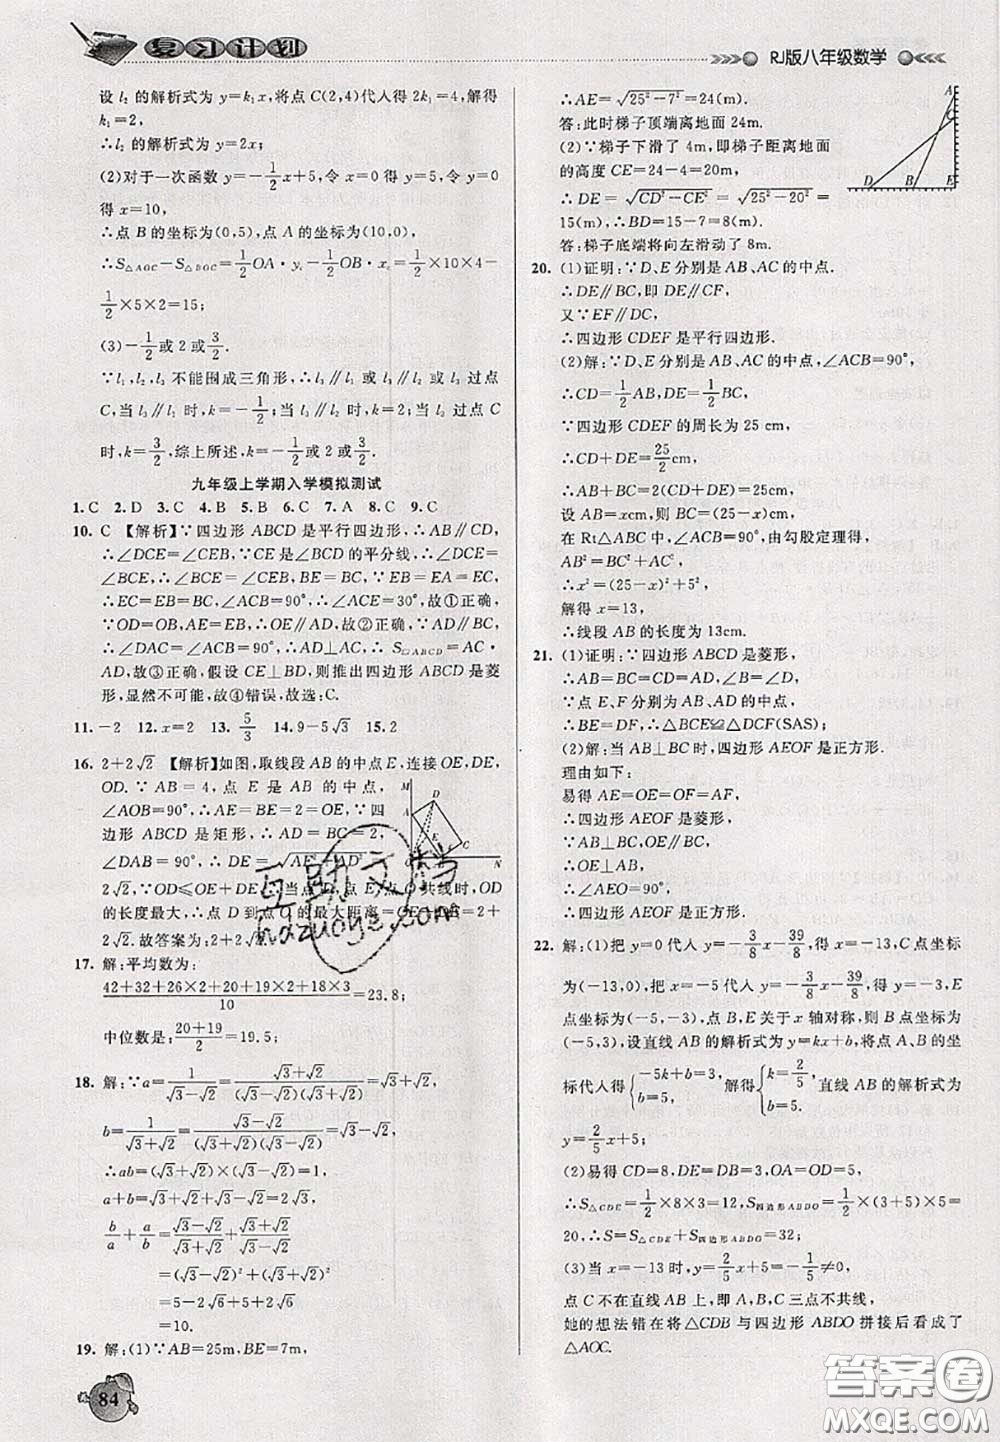 复习计划
RJ版八年级数学
设 l₂ 的解析式为 y=k₁x,将点 C(2,4)代入得 2k₁=4,解得
k₁=2,
∴l₂ 的解析式为 y=2x;
(2)对于一次函数 y=-1/2x+5,令 x=0 得 y=5,令 y=0
得 x=10,
∴点 B 的坐标为(0,5),点 A 的坐标为(10,0),
∴S△AOC-S△BOC=1/2OA·yc-1/2OB·xc=1/2×10×4-
1/2×5×2=15;
(3)-1/2或 2 或3/2.
∵l₁,l₂,l₃ 不能围成三角形,∴l₃∥l₁ 或 l₃∥l₂ 或 l₃ 过点
C,当 l₃∥l₁ 时,k=-1/2;当 l₃∥l₂ 时,k=2;当 l₃ 过点 C
时,k=3/2,综上所述,k=-1/2或 2 或3/2.
九年级上学期入学模拟测试
1.C 2.D 3.C 4.B 5.B 6.C 7.A 8.C 9.C
10. C 【解析】∵四边形 ABCD 是平行四边形,∴AB∥CD,
∴∠DCE=∠CEB,∵CE 是∠BCD 的平分线,∴∠DCE=
∠BCE,∴∠CEB=∠BCE,∴BC=BE,∵∠ABC=60°,
∴EC=EB=BC,∵∠ACB=90°,∴∠ACE=30°,故①正确,
∵OD=OB,AE=EB,∴AD=2OE,故②正确,∵AD∥BC,
∴∠DAC=∠ACB=90°,∴AD⊥AC,∴S▱ABCD=AC·
AD,故③正确,假设 CE⊥BD,则推出四边形 ABCD 是菱
形,显然不可能,故④错误,故选:C.
11.-2 12.x=2 13.5/3 14.9-5√3 15.2
16. 2+2√2 【解析】如图,取线段 AB 的中点 E,连接 OE,DE,
OD.∵AB=4,点 E 是 AB 的中点,
∠AOB=90°,∴AE=BE=2=OE,∵四
边形 ABCD 是矩形,∴AD=BC=2,
∠DAB=90°,∴DE=√(AE²+AD²)=
2√2,∵OD≤OE+DE,∴当点 D,点 E,点 O 共线时,OD
的长度最大,∴点 D 到点 O 的最大距离=OE+DE=2+
2√2.故答案为:2+2√2.
17. 解:平均数为:
(42+32+26×2+20+19×2+18×3)/10=23.8;
中位数是:(20+19)/2=19.5;
18. 解:∵a=1/(√3-√2)=(√3+√2)/((√3-√2)(√3+√2))=√3+√2,
b=1/(√3+√2)=(√3-√2)/((√3+√2)(√3-√2))=√3-√2,
∴ab=(√3+√2)×(√3-√2)=1,
a+b=√3+√2+√3-√2=2√3,
b/a+a/b=(√3-√2)/(√3+√2)+(√3+√2)/(√3-√2)
=(√3-√2)²+(√3+√2)²
=5-2√6+5+2√6
=10.
19. 解:(1)∵AB=25m,BE=7m,
84
∴AE=√(25²-7²)=24(m).
答:此时梯子顶端离地面 24m.
(2)∵梯子下滑了 4m,即梯子距离地面
的高度 CE=24-4=20m,
∴DE=√(CD²-CE²)=√(25²-20²)=
15(m),∴BD=15-7=8(m).
答:梯子底端将向左滑动了 8m.
20. (1)证明:∵D、E 分别是 AB、AC 的中点.
∴DE∥BC,即 DE∥CF,
又∵EF∥DC,
∴四边形 CDEF 是平行四边形.
(2)解:∵D、E 分别是 AB、AC 的中点,∠ACB=90°,
∴CD=1/2AB,DE=1/2BC,
∵四边形 CDEF 的周长为 25 cm,
∴CD+DE=25/2cm,
∴AB+BC=25cm,
设 AB=xcm,则 BC=(25-x)cm,
在 Rt△ABC 中,∠ACB=90°,由勾股定理得,
AB²=BC²+AC²,
∴x²=(25-x)²+5²,
解得 x=13,
∴线段 AB 的长度为 13cm.
21. (1)证明:∵四边形 ABCD 是菱形,
∴AB=BC=CD=AD,∠B=∠D,
∵点 E、F 分别为 AB、AD 的中点,
∴BE=DF,∴△BCE≌△DCF(SAS);
(2)解:当 AB⊥BC 时,四边形 AEOF 是正方形.
理由如下:
易得 AE=OE=OF=AF,
∴四边形 AEOF 是菱形,
∵AB⊥BC,OE∥BC,
∴OE⊥AB,
∴∠AEO=90°,
∴四边形 AEOF 是正方形.
22. 解:(1)把 y=0 代入 y=-3/8x-39/8,得 x=-13,C 点坐标
为(-13,0),把 x=-5 代入 y=-3/8x-39/8,得 y=-3,E
点坐标为(-5,-3),点 B,E 关于 x 轴对称,则 B 点坐标为
(-5,3),设直线 AB 的解析式为 y=kx+b,将点 A、B 的坐
标代入得{-5k+b=3, b=5. 解得{k=2/5, b=5. 直线 AB 的解析式为
y=2/5x+5;
(2)易得 CD=8,DE=DB=3,OA=OD=5,
∴S△CDE=1/2×8×3=12,S四边形ABDO=1/2×(3+5)×5=
20,∴S=S△CDE+S四边形ABDO=32;
(3)当 x=-13 时,y=2/5x+5=-1/5≠0,
点 C 不在直线 AB 上,即 A,B,C 三点不共线,
她的想法错在将△CDB 与四边形 ABDO 拼接后看成了
△AOC.
A
C
D
B
E
M
D
A
E
C
O
B
N
互助文档
hdzuoye.com
答案圈
MXQE.COM